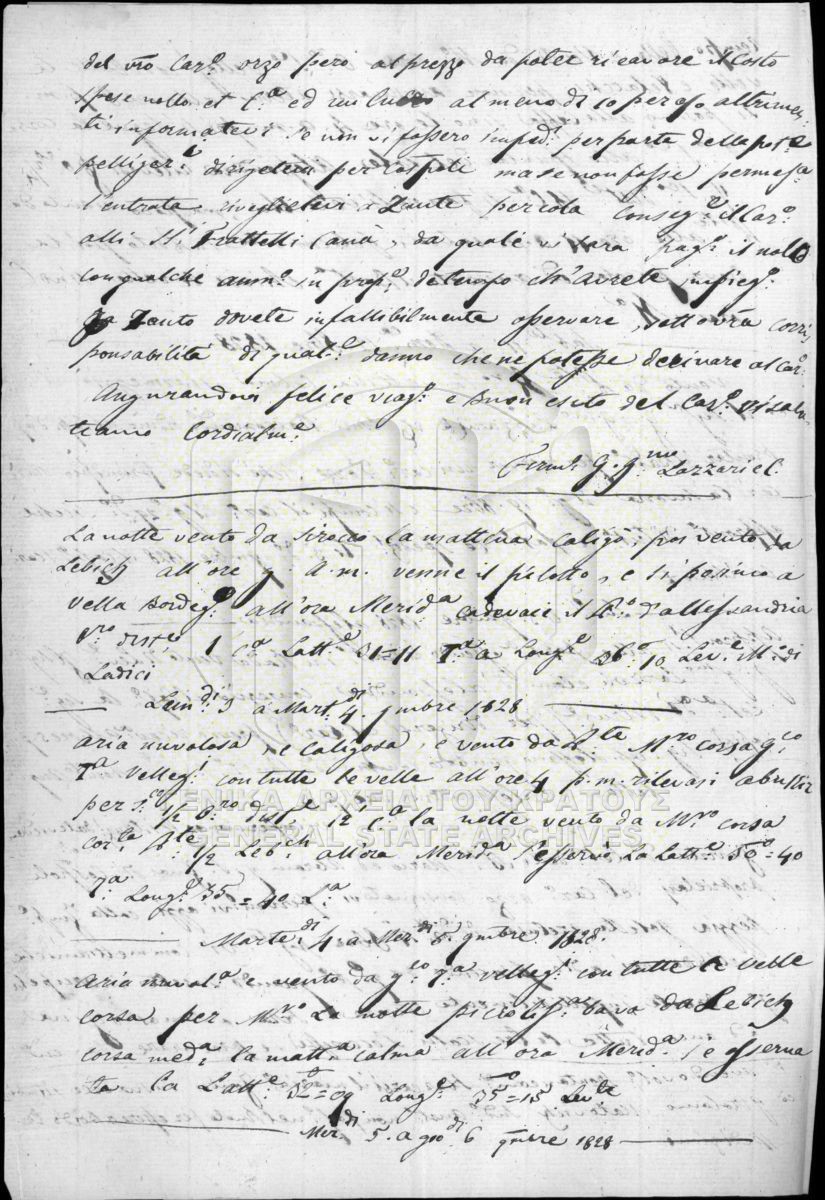 del vro Car.o orzo però al prezzo da poter ricavare il costo
spese nollo et C.a ed un lucro al meno di 10 per % altrimen-
ti informatevi se non vi fossero imped.i per parte della pot.e
belliger.e dirigetevi per cospoli ma se non fosse permessa
l'entrata a Zante per cola conseg.e il Car.o
alli S.i Frattelli Canà, da quale vi sara pag.o il nollo
con qualche aum.o in prop.e de tempo ch'avrete impieg.o
Tanto dovete infallibilmente osservare, sotto vra corri,
ponsabilità di qual.e danno che ne potesse derivare al Car.o
Augurandovi felice viag.o e buon esito del Car.o vi salu-
tiamo Cordialm.e
Firm.i G. q.me Lazzari e C.
La notte vento da sirocco la mattina caligo, poi vento da
Lebich all'ore 9 A.m. venne il pilotto, e si posimo a
vella all'ora Merid.a il d'allessandria
dist.e 1 C.a Latt.e 31=11 T.a a Long.e 10 Lev.e M. di
Ladici
Lun.di 3 a Mart.di 4. 9mbre 1828
aria nuvolosa, e caligosa, e vento da M.ro corsa g.co
T.a velleg.i con tutte le velle all'ore 4 p.m. rilevasi
per 1/2 dist.e 12 C.a la notte vento da M.ro corsa
1/2 Leb.ch all'ora Merid.a s'esservò La Latt.e =40
T.a Long.e 35=40 L.a
Marte.di 4 a Mer.di 5. 9mbre 1828.
aria nuvol.a e vento da g.co T.a velleg.i con tutte le velle
corsa per M.ro La notte bava da Lebich
corsa med.a la matt.a calma all'ora Merid.a s'e osserva
ta la Latt.e 32=09 Long.e 35=15 Lev.te
Mer.di 5. a gio.di 6 9mbre 1828
ΓΕΝΙΚΑ ΑΡΧΕΙΑ ΤΟΥ ΚΡΑΤΟΥΣ
GENERAL STATE ARCHIVES